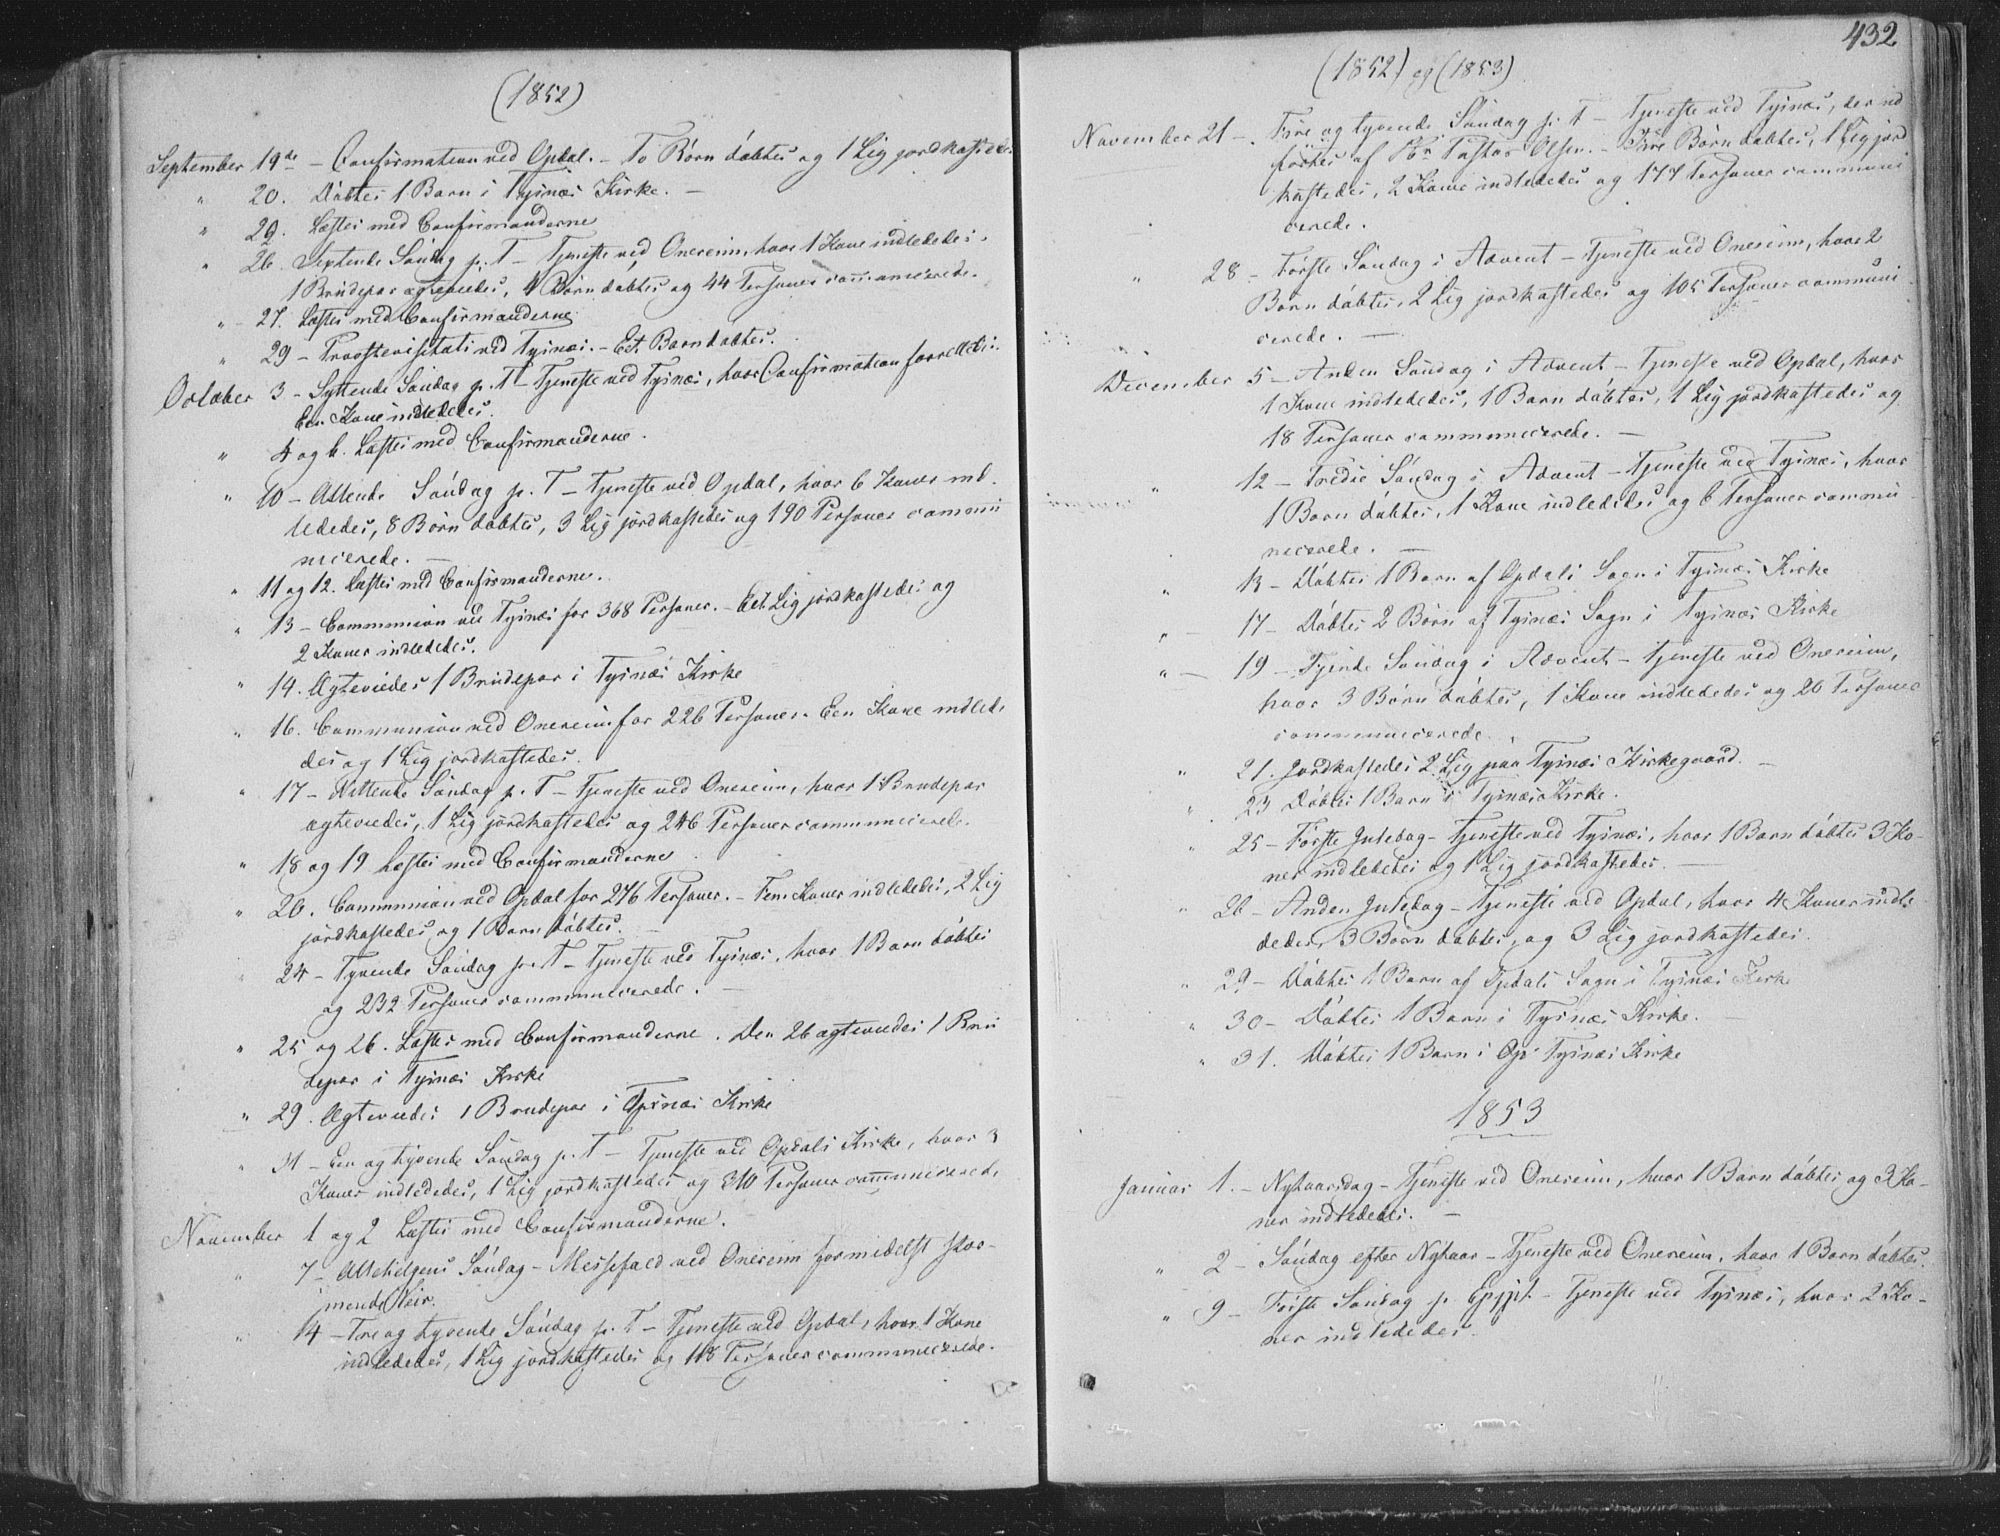 (1852)
September 19de – Confirmation ved Opdal. – To Börn döbtes og 1 Lig jordkastedes.
" 20. Döbtes 1 Barn i Tysnæs Kirke. –
" 22. Læstes med Confirmanderne
" 26. Søndag p. T – Tjeneste ved Onereim, hvor 1 Kone indledes,
1 Brudepar ægteviedes, 4 Börn döbtes og 44 Personer communicerede.
" 27. Læstes med Confirmanderne
" 29 – Proostevisitats ved Tysnæs. – Et Barn döbtes.
October 3 – Syttende Söndag p. T – Tjeneste ved Tysnæs, hvor Confirmation forrettedes.
Een Kone indledes.
" 4 og 6. Læstes med Confirmanderne.
" 10 – Attende Söndag p. T – Tjeneste ved Opdal, hvor 6 Koner ind
ledes, 8 Börn döbtes, 3 Lig jordkastedes og 190 Personer commu
nicerede. –
" 11 og 12. Læstes med Confirmanderne.
" 13 – Communion ved Tysnæs for 368 Personer. – Eet Lig jordkastedes og
2 Koner indledes.
" 14. Ægteviedes 1 Brudepar i Tysnæs Kirke
" 16. Communion ved Onereim for 226 Personer. Een Kone indlede
des og 1 Lig jordkastedes.
" 17 – Nittende Söndag p. T – Tjeneste ved Onereim, hvor 1 Brudepar
ægteviedes, 1 Lig jordkastedes og 246 Personer communicerede.
" 18 og 19 Læstes med Confirmanderne
" 20. Communion ved Opdal for 276 Personer. – Fem Koner indledes, 2 Lig
jordkastedes og 1 Barn döbtes.
" 24 – Tyvende Söndag p. T – Tjeneste ved Tysnæs, hvor 1 Barn döbtes
og 232 Personer communicerede. –
" 25 og 26. Læstes med Confirmanderne. Den 26 ægteviedes 1 Bru
depar i Tysnæs Kirke
" 29. Ægteviedes 1 Brudepar i Tysnæs Kirke
" 31 – Een og tyvende Söndag p. T – Tjeneste ved Opdals Kirke, hvor 3
Koner indledes, 1 Lig jordkastedes og 310 Personer communicerede
November 1 og 2 Læstes med Confirmanderne.
" 7 – Allehelgens Söndag – Messefald ved Onereim formedelst stor-
mende Veir.
" 14 – Tre og tyvende Söndag p. T – Tjeneste ved Opdal, hvor 1 Kone
indledes, 1 Lig jordkastedes og 118 Personer communicerede.
432
(1852) og (1853)
November 21 – Fire og tyvende Söndag p. T – Tjeneste ved Tysnæs, der ud
førtes af Hr Pastor Olsen. – Fire Börn döbtes, 1 Lig jord
kastedes, 2 Kone indledes og 177 Personer communi
cerede.
" 28 – Förste Söndag i Advent – Tjeneste ved Onereim, hvor 2
Börn döbtes, 2 Lig jordkastedes og 105 Personer communi
cerede. –
December 5 – Anden Söndag i Advent – Tjeneste ved Opdal, hvor
1 Kone indledes, 1 Barn döbtes, 1 Lig jordkastedes og
18 Personer communicerede. –
" 12 – Tredie Söndag i Advent – Tjeneste ved Tysnæs, hvor
1 Barn döbtes, 1 Kone indledes og 6 Personer commu
nicerede. –
" 13 – Döbtes 1 Barn af Opdals Sogn i Tysnæs Kirke
" – 17 – Döbtes 2 Börn af Tysnæs Sogn i Tysnæs Kirke
" – 19 – Fjerde Söndag i Advent – Tjeneste ved Onereim,
hvor 3 Börn döbtes, 1 Kone indledes og 26 Personer
communicerede.
" 21. Jordkastedes 2 Lig paa Tysnæs Kirkegaard. –
" 23 Döbtes 1 Barn i Tysnæs Kirke.
" 25 – Förste Juledag – Tjeneste ved Tysnæs, hvor 1 Barn döbtes 3 Ko-
ner indledes og 1 Lig jordkastedes. –
" 26 – Anden Juledag – Tjeneste ved Opdal, hvor 4 Koner indle
dedes, 3 Börn döbtes, og 3 Lig jordkastedes.
" 29 – Döbtes 1 Barn af Opdals Sogn i Tysnæs Kirke
" 30 – Döbtes 1 Barn i Tysnæs Kirke. –
" 31. Döbtes 1 Barn i Op Tysnæs Kirke
1853
Januar 1. – Nytaarsdag – Tjeneste ved Onereim, hvor 1 Barn döbtes og 3 Ko-
ner indledes. –
" 2 – Söndag efter Nytaar – Tjeneste ved Onereim, hvor 1 Barn döbtes.
" 9 – Förste Söndag p. Epiph. – Tjeneste ved Tysnæs, hvor 2 Ko-
ner indledes.